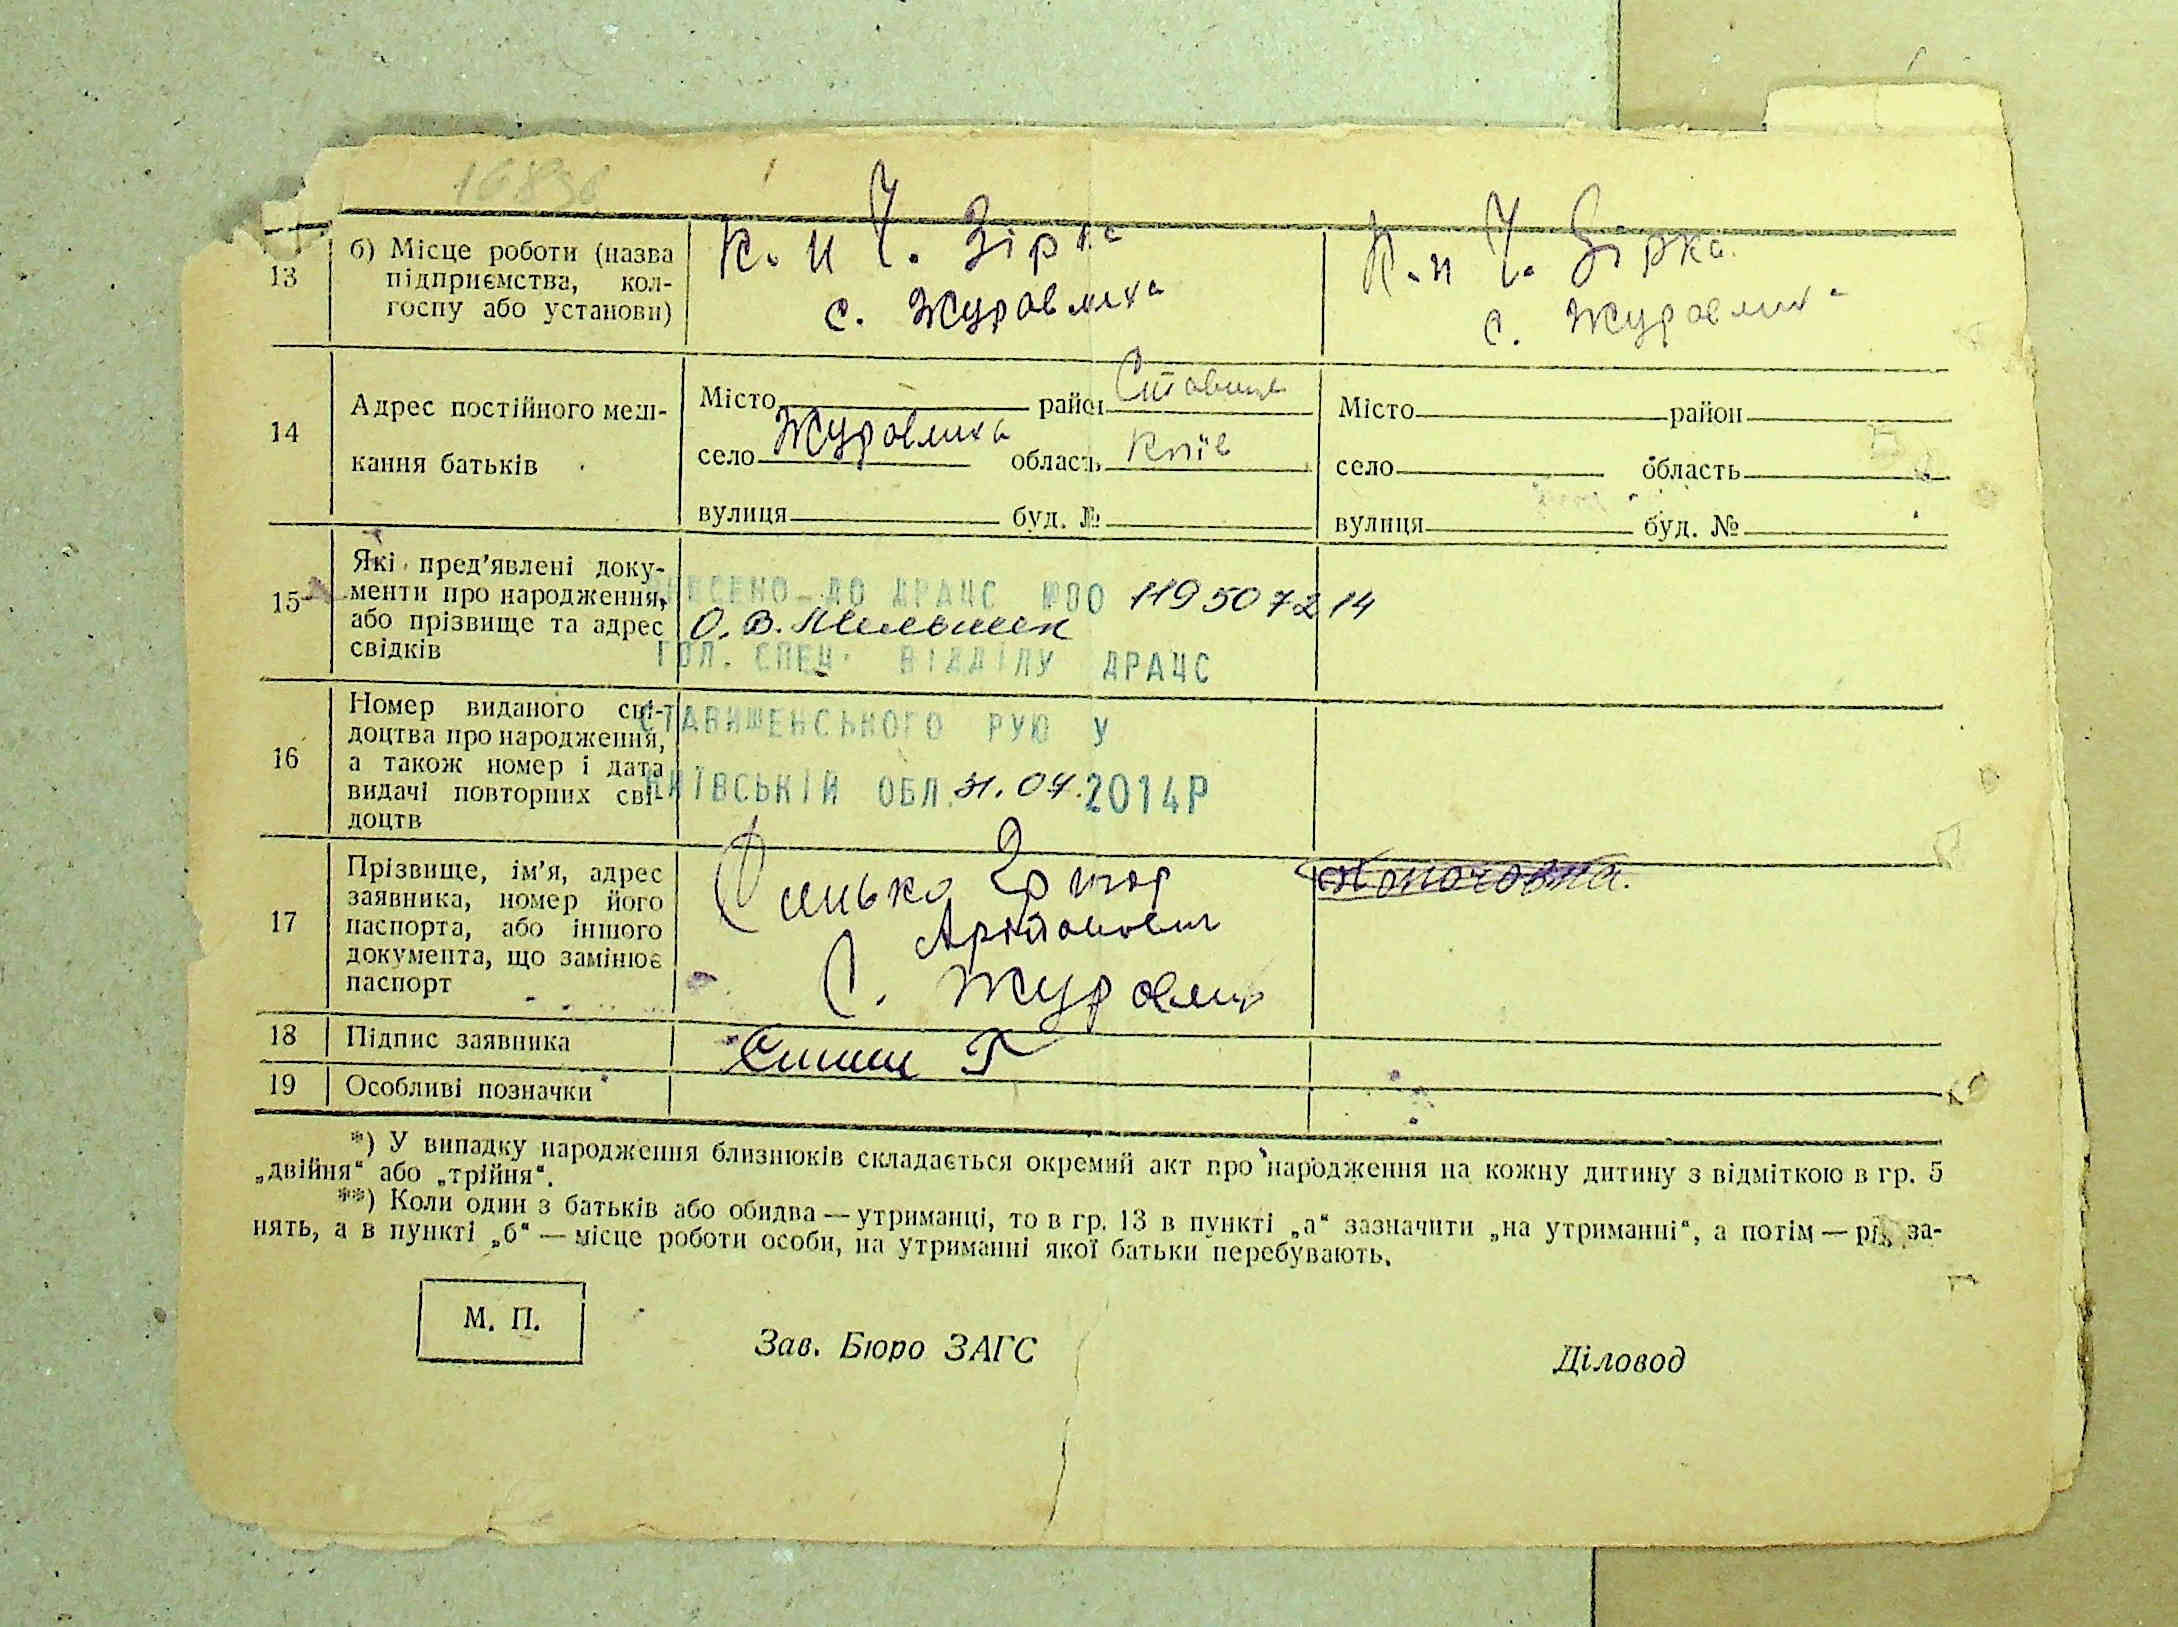 16836
13
б) Місце роботи (назва
підприємства, кол-
госпу або установи)
к. п Ч. Зірка
с. Журавлиха
К. п Ч. Зірка
с. Журавлиха
14
Адрес постійного меш-
кання батьків
Місто район Ставище
село Журавлиха область Київ
вулиця буд. №
Місто район
село область
вулиця буд. №
15
Які пред’явлені доку-
менти про народження,
або прізвище та адрес
свідків
ВНЕСЕНО ДО ДРАЦС №00 119507214
О. В. Мельник
ГОЛ. СПЕЦ. ВІДДІЛУ ДРАЦС
16
Номер виданого сві-
доцтва про народження,
а також номер і дата
видачі повторних сві-
доцтв
СТАВИЩЕНСЬКОГО РУЮ У
КИЇВСЬКІЙ ОБЛ. 31.07.2014Р
17
Прізвище, ім’я, адрес
заявника, номер його
паспорта, або іншого
документа, що замінює
паспорт
Григор
С. Журавлих
18
Підпис заявника
Г
19
Особливі позначки
*) У випадку народження близнюків складається окремий акт про народження на кожну дитину з відміткою в гр. 5
„двійня“ або „трійня“.
**) Коли один з батьків або обидва — утриманці, то в гр. 13 в пункті „а“ зазначити „на утриманні“, а потім — рід за-
нять, а в пункті „б“ — місце роботи особи, на утриманні якої батьки перебувають.
М. П.
Зав. Бюро ЗАГС
Діловод